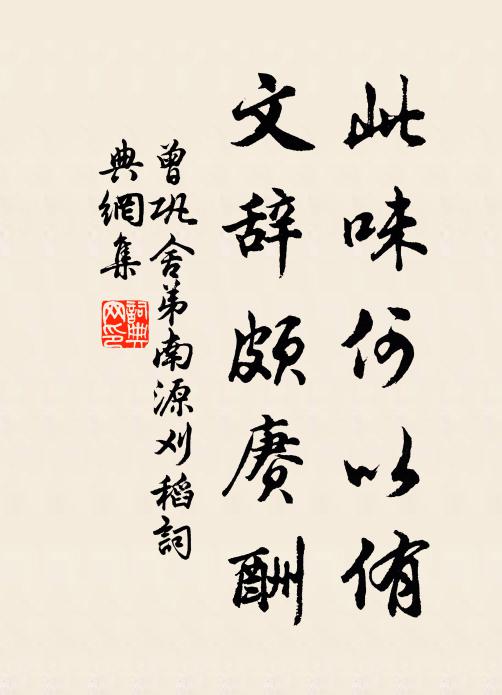 此味何以侑
文辞颇赓酬
曾巩舍弟南源刈稻詞
典網集
詞典
网印